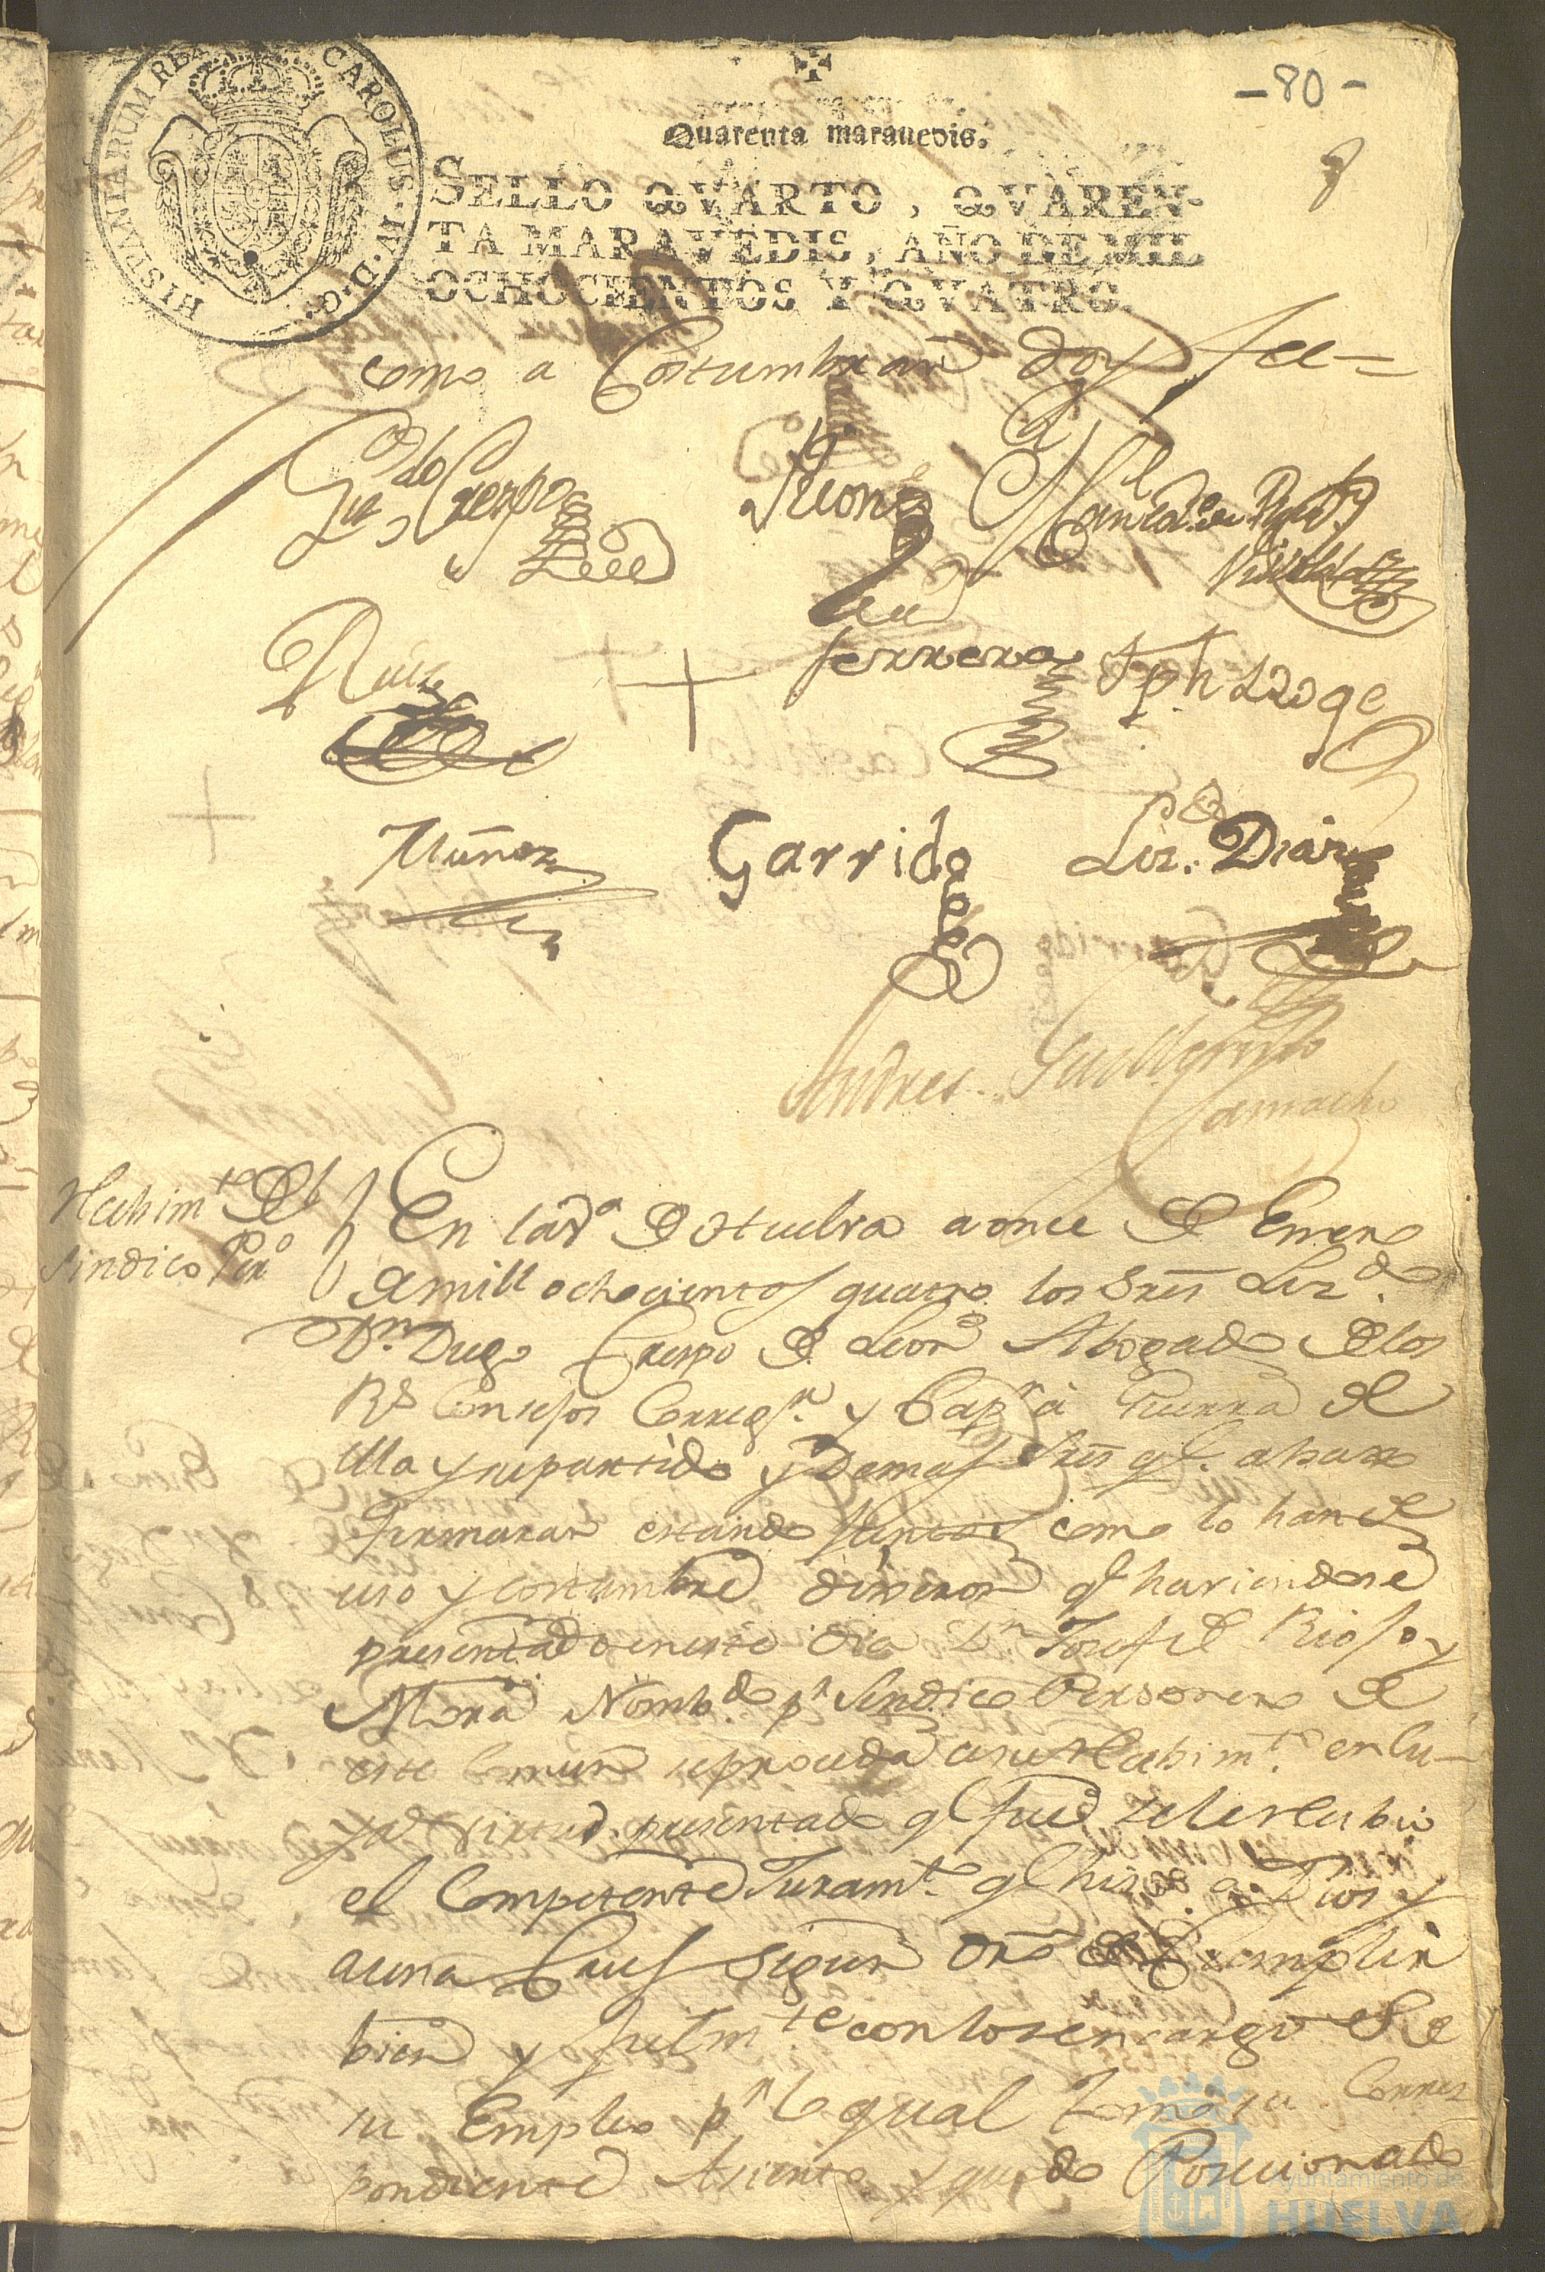 -80-
HISPANIARUM REX CAROLUS·IV·D·G·
Quarenta marauedis.
SELLO QVARTO, QVAREN-
TA MARAVEDIS, AÑO DE MIL
OCHOCIENTOS Y QVATRO.
como a Costumbran doy fee =
Liz.do Crespo
Leon
Ruiz
Ferrera
Jph
Nuñez
Garrido
Liz.do Diaz
Andres Guillermo
Camacho
Recivim.to del
Sindico Per.o
En la v.a de Huelva a once de Enero
de mill ochocientos quatro los Sres Lizd.o
Dn. Diego Crespo de Leon Abogado de los
Rs Consejos Corregr. y Capn a Guerra de
ella y su partido y Demas Sres q.e abaxo
firmaran estando juntos como lo han de
uso y costumbre dixeron q.e haviendose
presentado en este dia Dn Josef del Rioso y
Mora Nomb.do pr Sindico Personero de
este Comun se proceda a su Recibimto. en cu-
ya virtud presentado q.e fue se le recibio
el Competente Juramto. q.e hizo a Dios y
a una Cruz segun dro de cumplir
bien y fielmte con los encargos de
su Empleo pr lo qual tomó su Corres
pondiente Asiento y quedo Posecionado
Ayuntamiento de
HUELVA